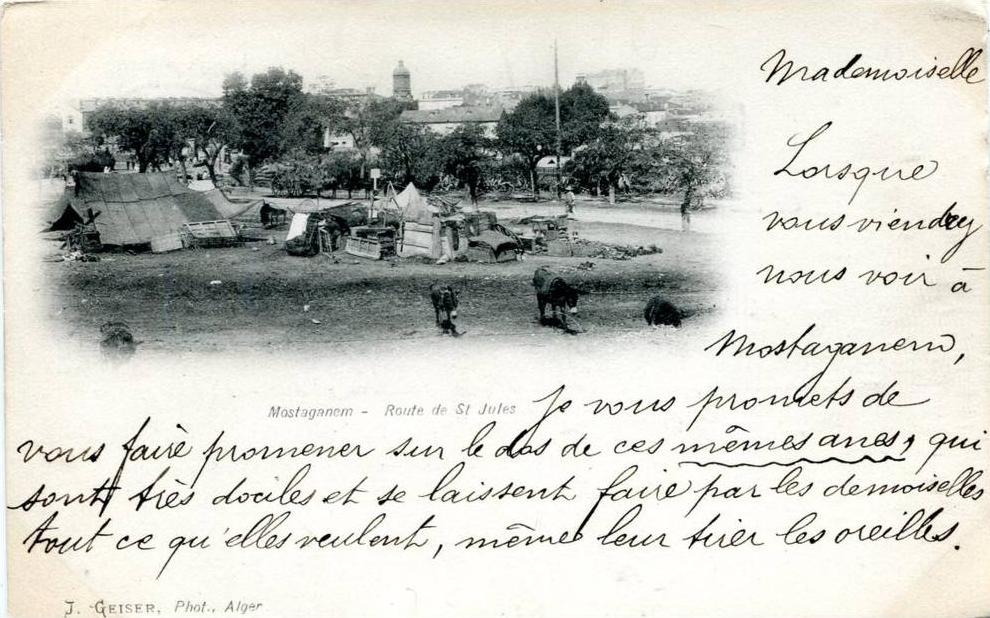 Mademoiselle
Lorsque
vous viendrez
nous voir à
Mostaganem,
Mostaganem - Route de St Jules
Je vous promets de
vous faire promener sur le dos de ces mêmes anes, qui
sont très dociles et se laissent faire par les demoiselles
tout ce qu'elles veulent, même leur tirer les oreilles.
J. GEISER, Phot., Alger